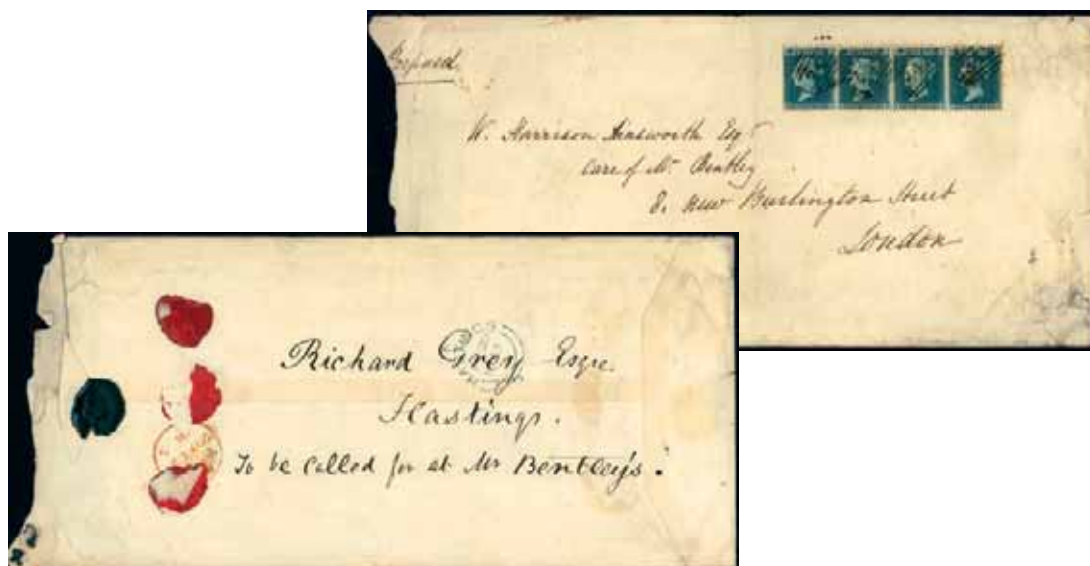 W. Harrison Ainsworth Esqr
Care of Mr. Bentley
8. New Burlington Street
London
Richard Grey Esqre.
Hastings.
To be called for at Mr Bentley's.